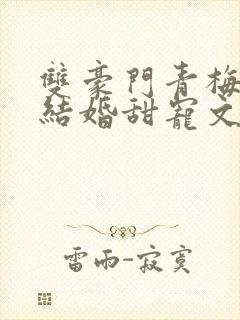 雙豪門青梅
結婚甜寵文
雷雨-寂寞